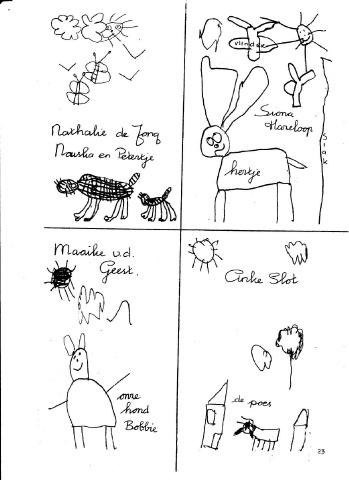 Nathalie de Jong
Mauska en Petertje
vlinder
Siona
Hareloop
slak
hertje
Maaike v.d.
Geest.
onze
hond
Bobbie
Anke Slot
de poes
23